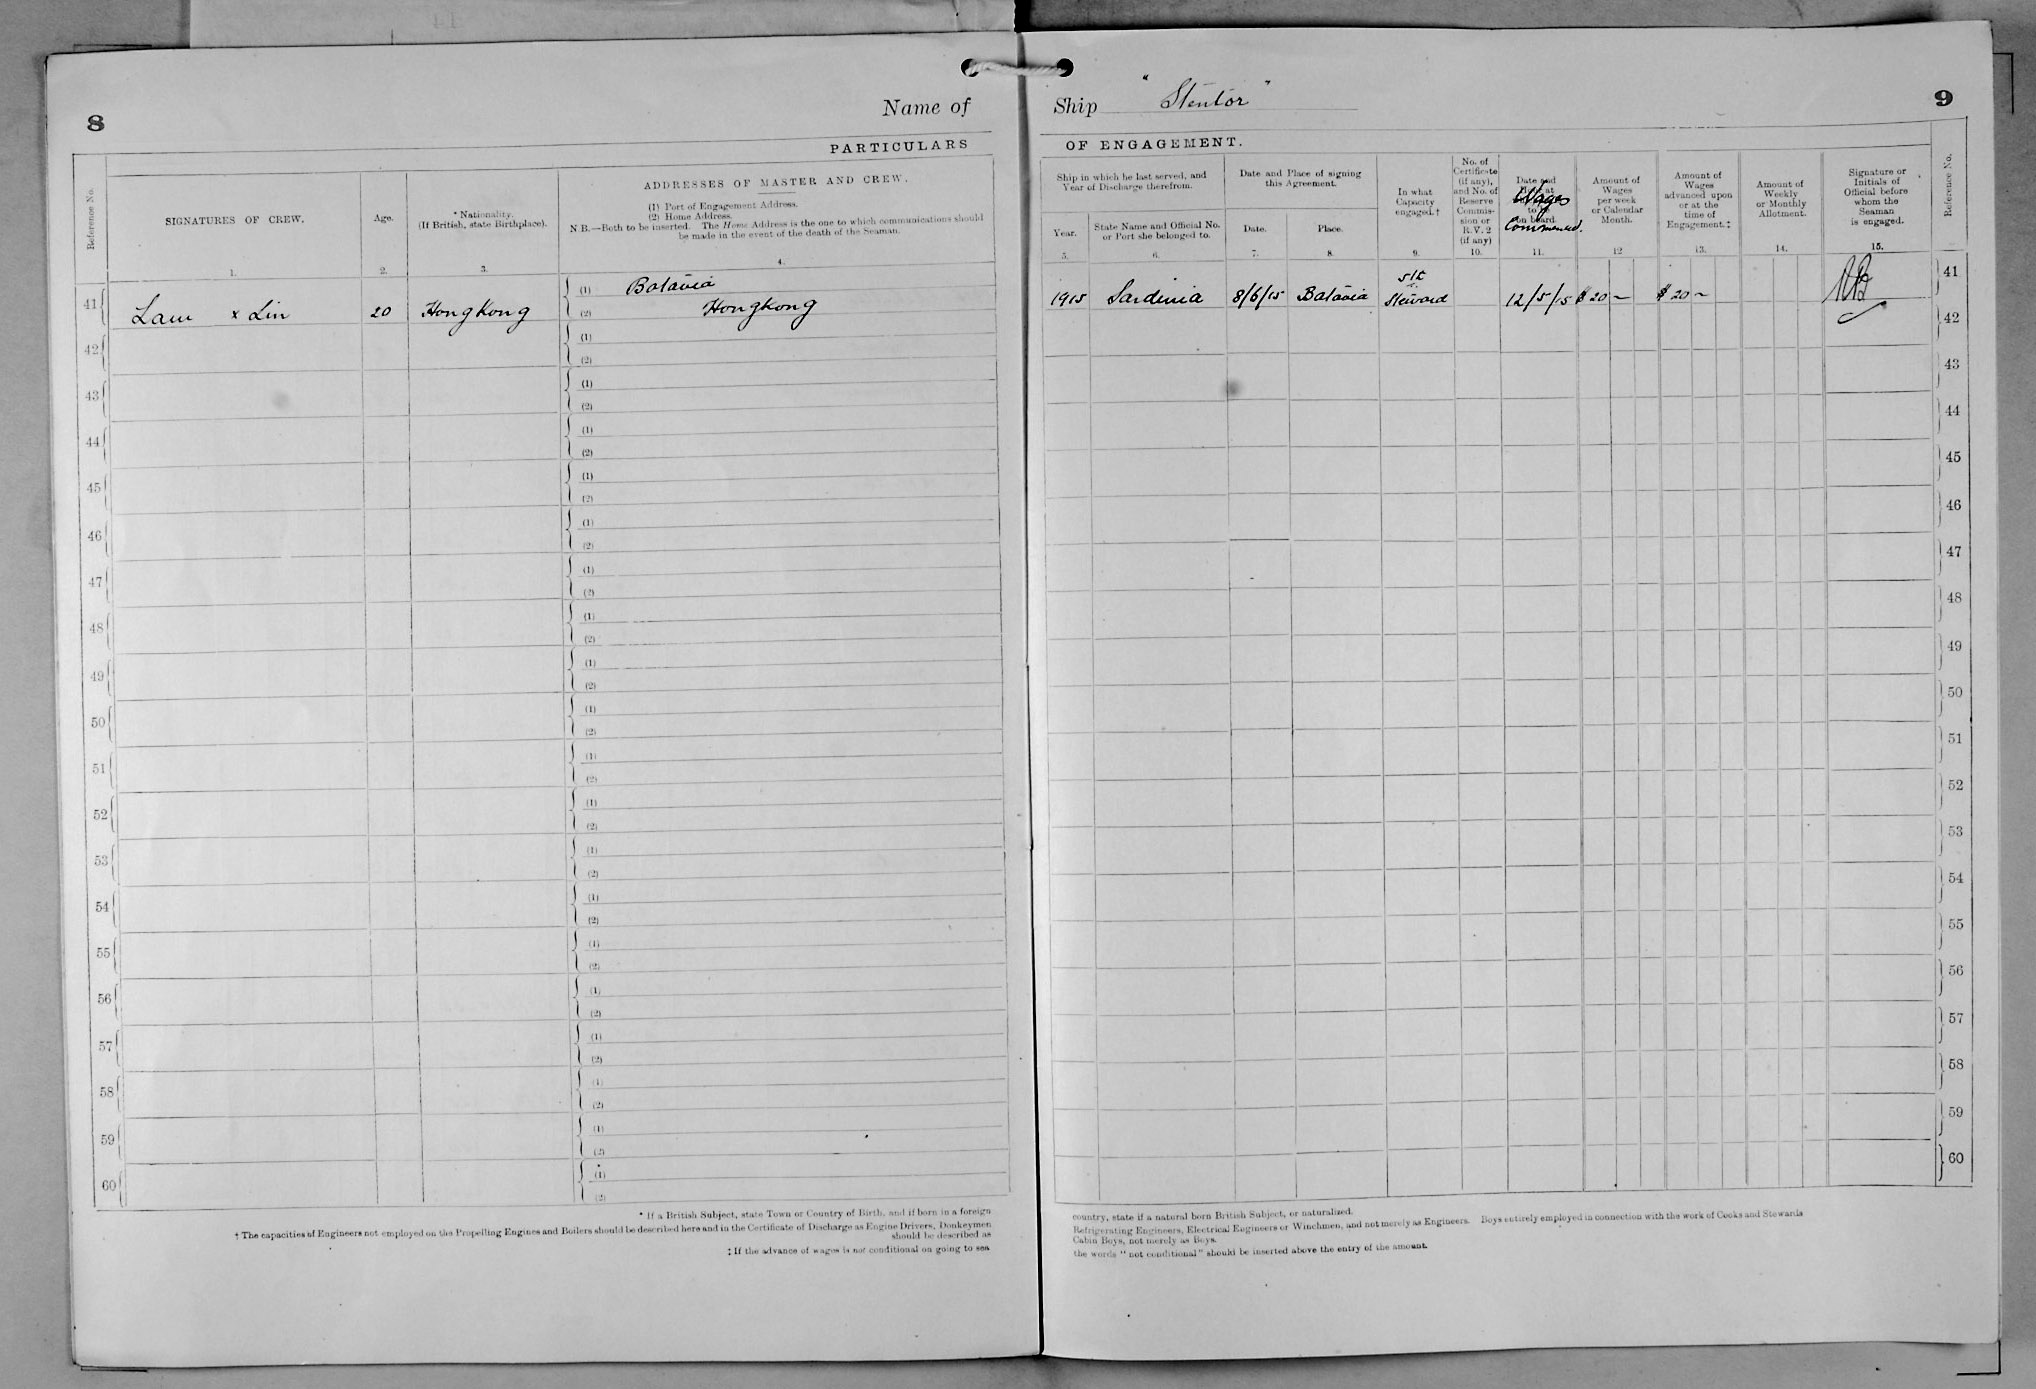 8
Name of
PARTICULARS
Reference No.
SIGNATURES OF CREW.
1.
Age.
2.
* Nationality.
(If British, state Birthplace).
3.
ADDRESSES OF MASTER AND CREW.
(1) Port of Engagement Address.
(2) Home Address.
N.B.—Both to be inserted. The Home Address is the one to which communications should
be made in the event of the death of the Seaman.
4.
41 Lam x Lin 20 Hongkong (1) Batavia
(2) Hongkong
42 (1)
(2)
43 (1)
(2)
44 (1)
(2)
45 (1)
(2)
46 (1)
(2)
47 (1)
(2)
48 (1)
(2)
49 (1)
(2)
50 (1)
(2)
51 (1)
(2)
52 (1)
(2)
53 (1)
(2)
54 (1)
(2)
55 (1)
(2)
56 (1)
(2)
57 (1)
(2)
58 (1)
(2)
59 (1)
(2)
60 (1)
(2)
* If a British Subject, state Town or Country of Birth, and if born in a foreign
† The capacities of Engineers not employed on the Propelling Engines and Boilers should be described here and in the Certificate of Discharge as Engine Drivers, Donkeymen
should be described as
‡ If the advance of wages is not conditional on going to sea
Ship "Stentor"
9
OF ENGAGEMENT.
Ship in which he last served, and
Year of Discharge therefrom.
Year.
5.
State Name and Official No.
or Port she belonged to.
6.
Date and Place of signing
this Agreement.
Date.
7.
Place.
8.
In what
Capacity
engaged.†
9.
No. of
Certificate
(if any),
and No. of
Reserve
Commis-
sion or
R.V. 2
(if any)
10.
Date and
at
Wages
to
on board.
Commenced.
11.
Amount of
Wages
per week
or Calendar
Month.
12
Amount of
Wages
advanced upon
or at the
time of
Engagement.‡
13.
Amount of
Weekly
or Monthly
Allotment.
14.
Signature or
Initials of
Official before
whom the
Seaman
is engaged.
15.
Reference No.
1915 Sardinia 8/6/15 Batavia Steward 12/5/15 $ 20 – $ 20 – 41
42
43
44
45
46
47
48
49
50
51
52
53
54
55
56
57
58
59
60
country, state if a natural born British Subject, or naturalized.
Refrigerating Engineers, Electrical Engineers or Winchmen, and not merely as Engineers. Boys entirely employed in connection with the work of Cooks and Stewards
Cabin Boys, not merely as Boys.
the words "not conditional" should be inserted above the entry of the amount.